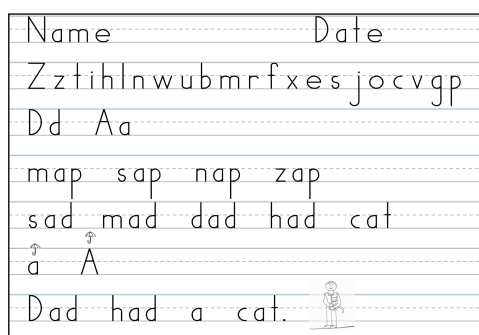 Name Date
Zztihlnwubmrfxesjocvgp
Dd Aa
map sap nap zap
sad mad dad had cat
a A
Dad had a cat.